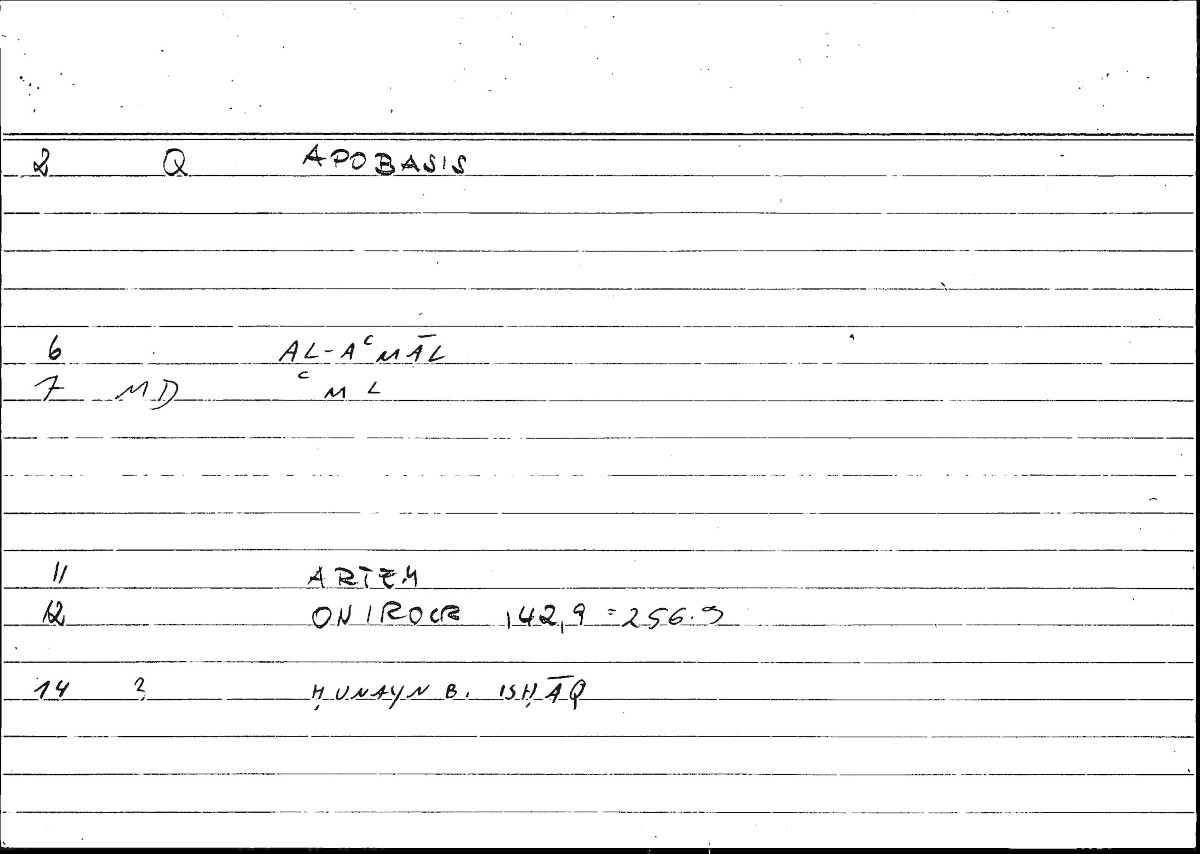 2 Q APOBASIS
6 AL-AʿMĀL
7 MD ʿML
11 ARTEM
12 ONIROCR 142,9 = 256.9
14 ? ḤUNAYN B. ISḤĀQ